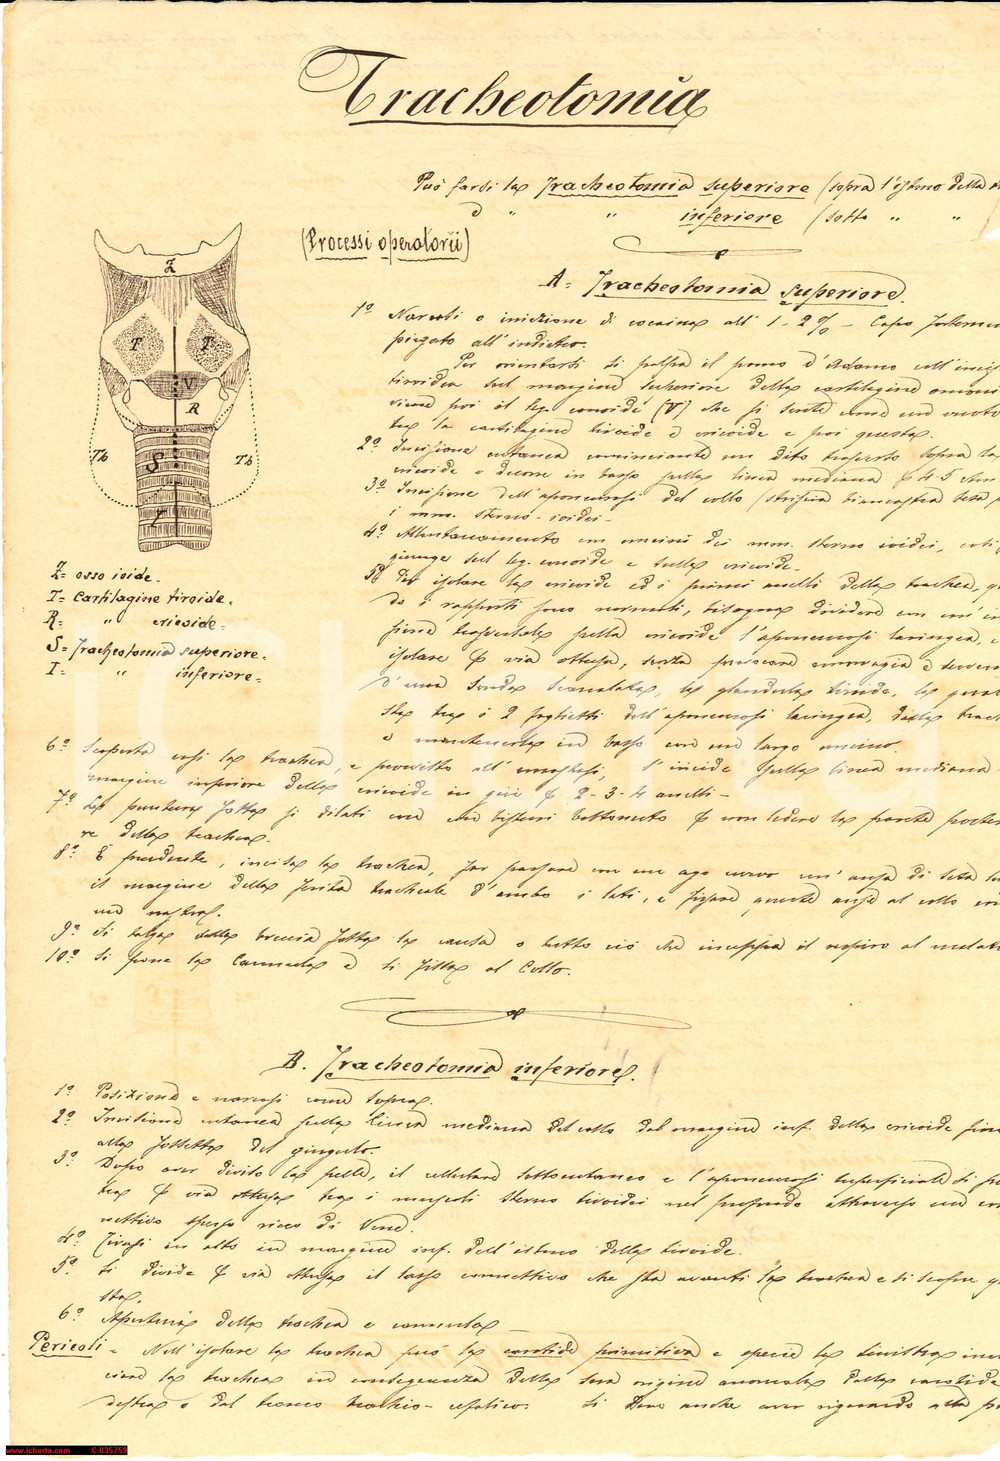 Tracheotomia
Può farsi la Tracheotomia superiore (sopra l'istmo della
" " inferiore (sotto " "
(Processi operatorii)
A = Tracheotomia superiore.
1º Narcosi o iniezione di cocaina all' 1-2% - Capo fortemen
piegato all'indietro.
Per orientarsi si palpa il pomo d'Adamo coll'incis
tiroidea sul margine superiore della cartilagine
viene poi il leg. conoide (V) che si sente come un vuoto
tra la cartilagine tiroide e cricoide e poi questa.
2º Incisione cutanea cominciante un dito trasverso sopra la
cricoide e decorre in basso sulla linea mediana p 4-5 cm
3º Incisione dell'aponeurosi del collo (striscia biancastra
i mm. sterno-ioidei -
4º Allontanamento con uncini dei mm. sterno ioidei, così
giunge sul leg. conoide e sulla cricoide -
5º Per isolare la cricoide ed i primi anelli della trachea,
do i rapporti sono normali, bisogna dividere con un'in
sione trasversale sulla cricoide l'aponeurosi laringea,
isolare p via ottusa, senza provocare emorragia e
d'una sonda scanalata, la glandula tiroide, la
sta tra i 2 foglietti dell'aponeurosi laringea, dalla trach
e mantenerla in basso con un largo uncino.
6º Scoperta così la trachea, e provvisto all'emostasi, s'incide sulla linea mediana
margine inferiore della cricoide in giù p 2-3-4 anelli -
7º La puntura fatta si dilati con un bisturi bottonato p non ledere la parete poster
re della trachea.
8º È prudente, incisa la trachea, far passare con un ago curvo un'ansa di seta
il margine della ferita tracheale d'ambo i lati, e fissare queste anse al collo con
un nastro.
9º Si tolga dalla breccia fatta la causa o tutto ciò che inceppa il respiro al malato
10º Si pone la Cannula e si fissa al Collo.
Z
T T
V
R
Th Th
S
I
Z = osso ioide -
T = Cartilagine tiroide.
R = " cricoide =
S = Tracheotomia superiore.
I = " inferiore =
B. Tracheotomia inferiore.
1º Posizione e narcosi come sopra.
2º Incisione cutanea sulla linea mediana del collo dal margine inf. della cricoide fino
alla fossetta del giugulo.
3º Dopo aver diviso la pelle, il cellulare sottocutaneo e l'aponeurosi superficiale si
tra p via ottusa tra i muscoli sterno tiroidei nel profondo attraverso un con
nettivo spesso ricco di vene.
4º Tirasi in alto in margine inf. dell'istmo della tiroide.
5º Si divide p via ottusa il lasso connettivo che sta avanti la trachea e si scopre
sta.
6º Apertura della trachea e cannula
Pericoli = Nell'isolare la trachea può la carotide primitiva e specie la sinistra
ciare la trachea in conseguenza della sua origine anomala dalla carotide
destra o dal tronco brachio-cefalico. Si deve anche aver riguardo alla
www.icharta.com C-035759